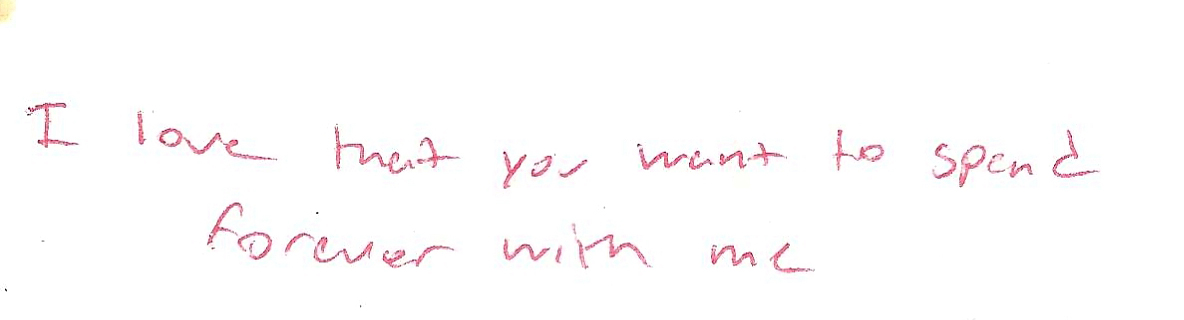 I love that you want to spend
forever with me